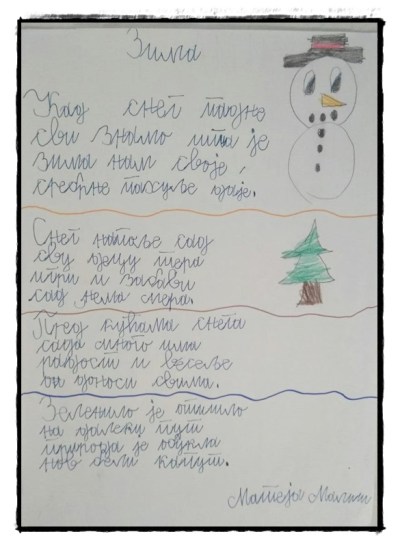 Зима
Кад снег падне
сви знамо шта је
зима нам своје,
сребрне пахуље даје.
Снег напоље сад
сву дјецу тера
игри и забави
сад нема мера.
Пред кућама снега
сада много има
радост и весеље
он доноси свима.
Зеленило је отишло
на далеки пут
природа је обукла
нов бели капут.
Матеја